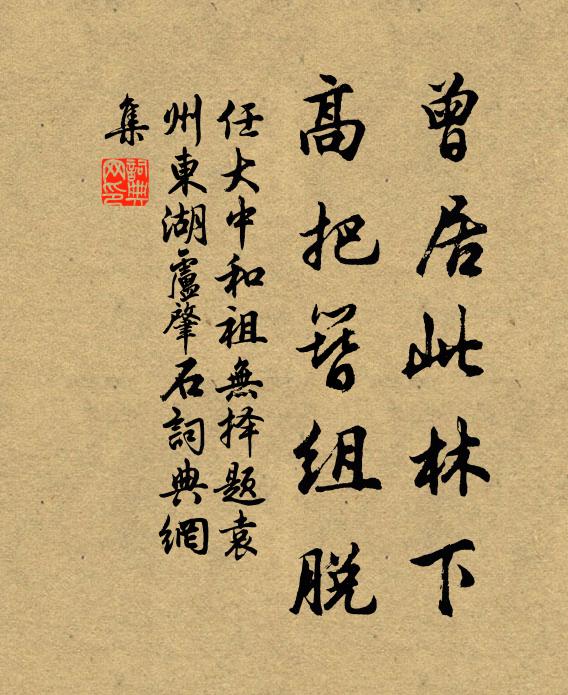 曾居此林下
高把簪组脱
任大中和祖無择题袁
州東湖盧肇石詞典網
集
詞典
网印